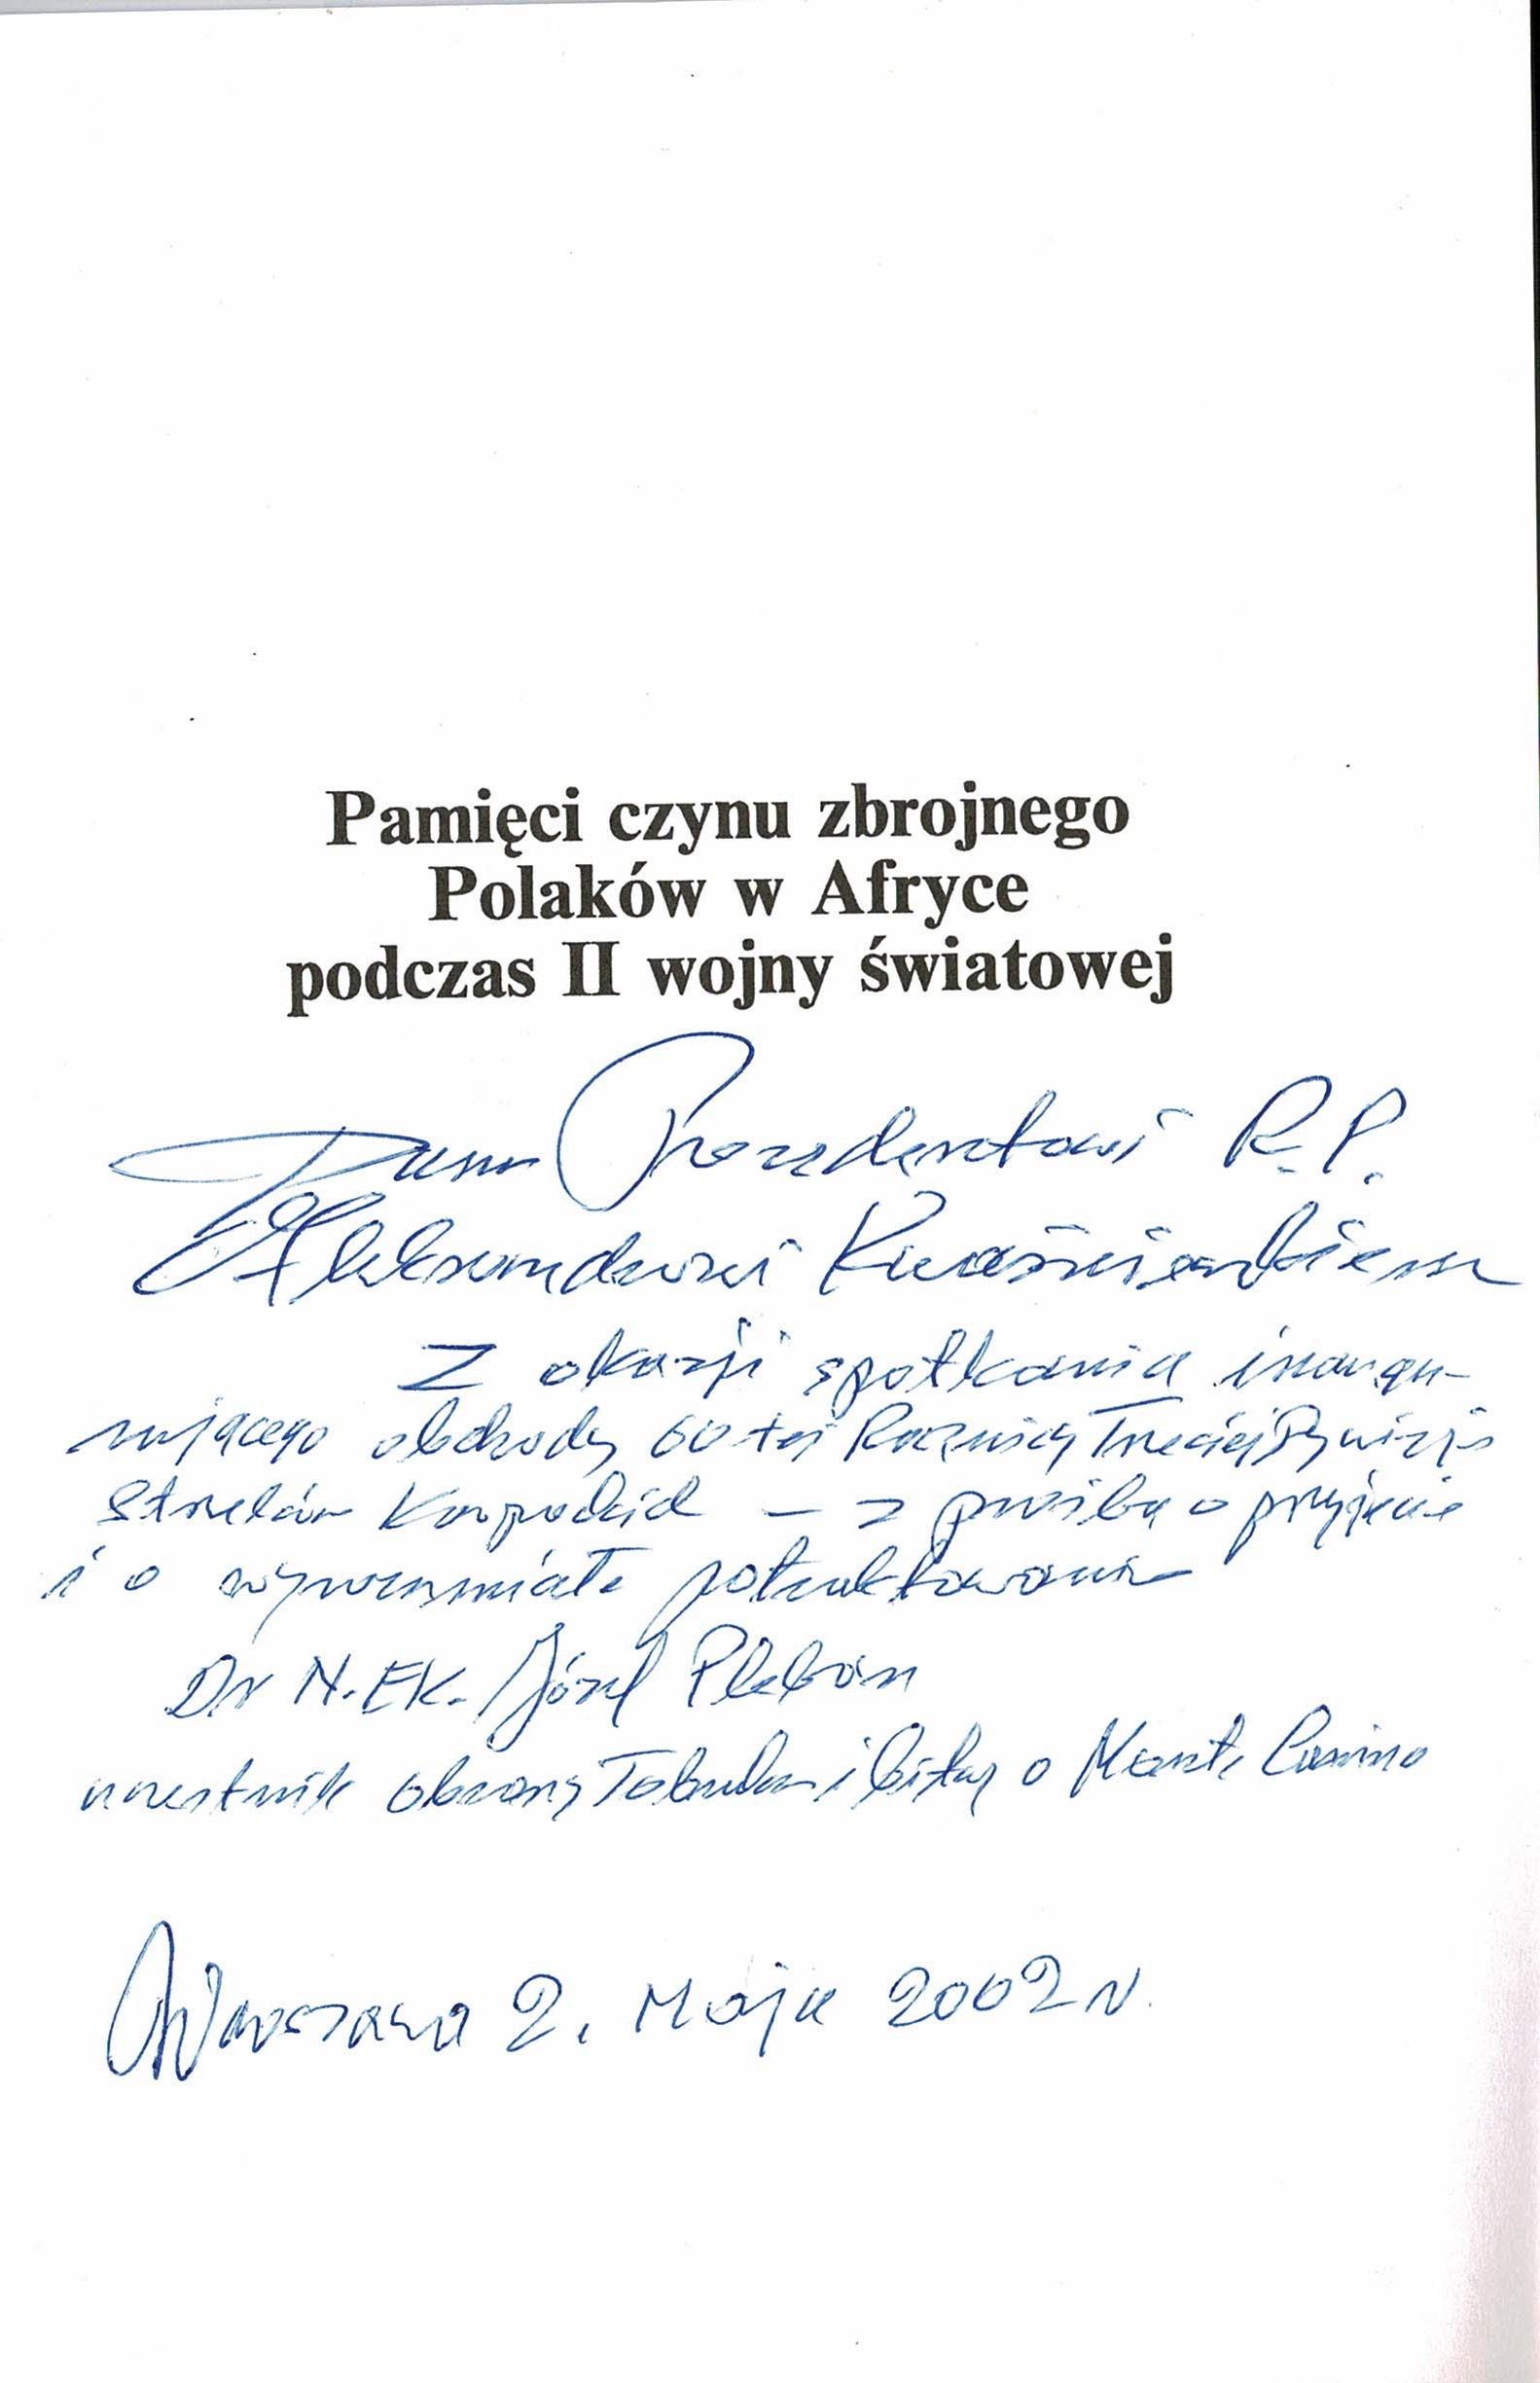 Pamięci czynu zbrojnego
Polaków w Afryce
podczas II wojny światowej
Panu Prezydentowi R.P.
Aleksandrowi Kwaśniewskiemu
Z okazji spotkania inaugu-
rującego obchody 60-tej Rocznicy Trzeciej Dywizji
Strzelców Karpackich – z prośbą o przyjęcie
i o wyrozumiałe potraktowanie
Dr N. EK. Józef Pleban
uczestnik obrony Tobruku i bitwy o Monte Cassino
Warszawa 2. Maja 2002 r.